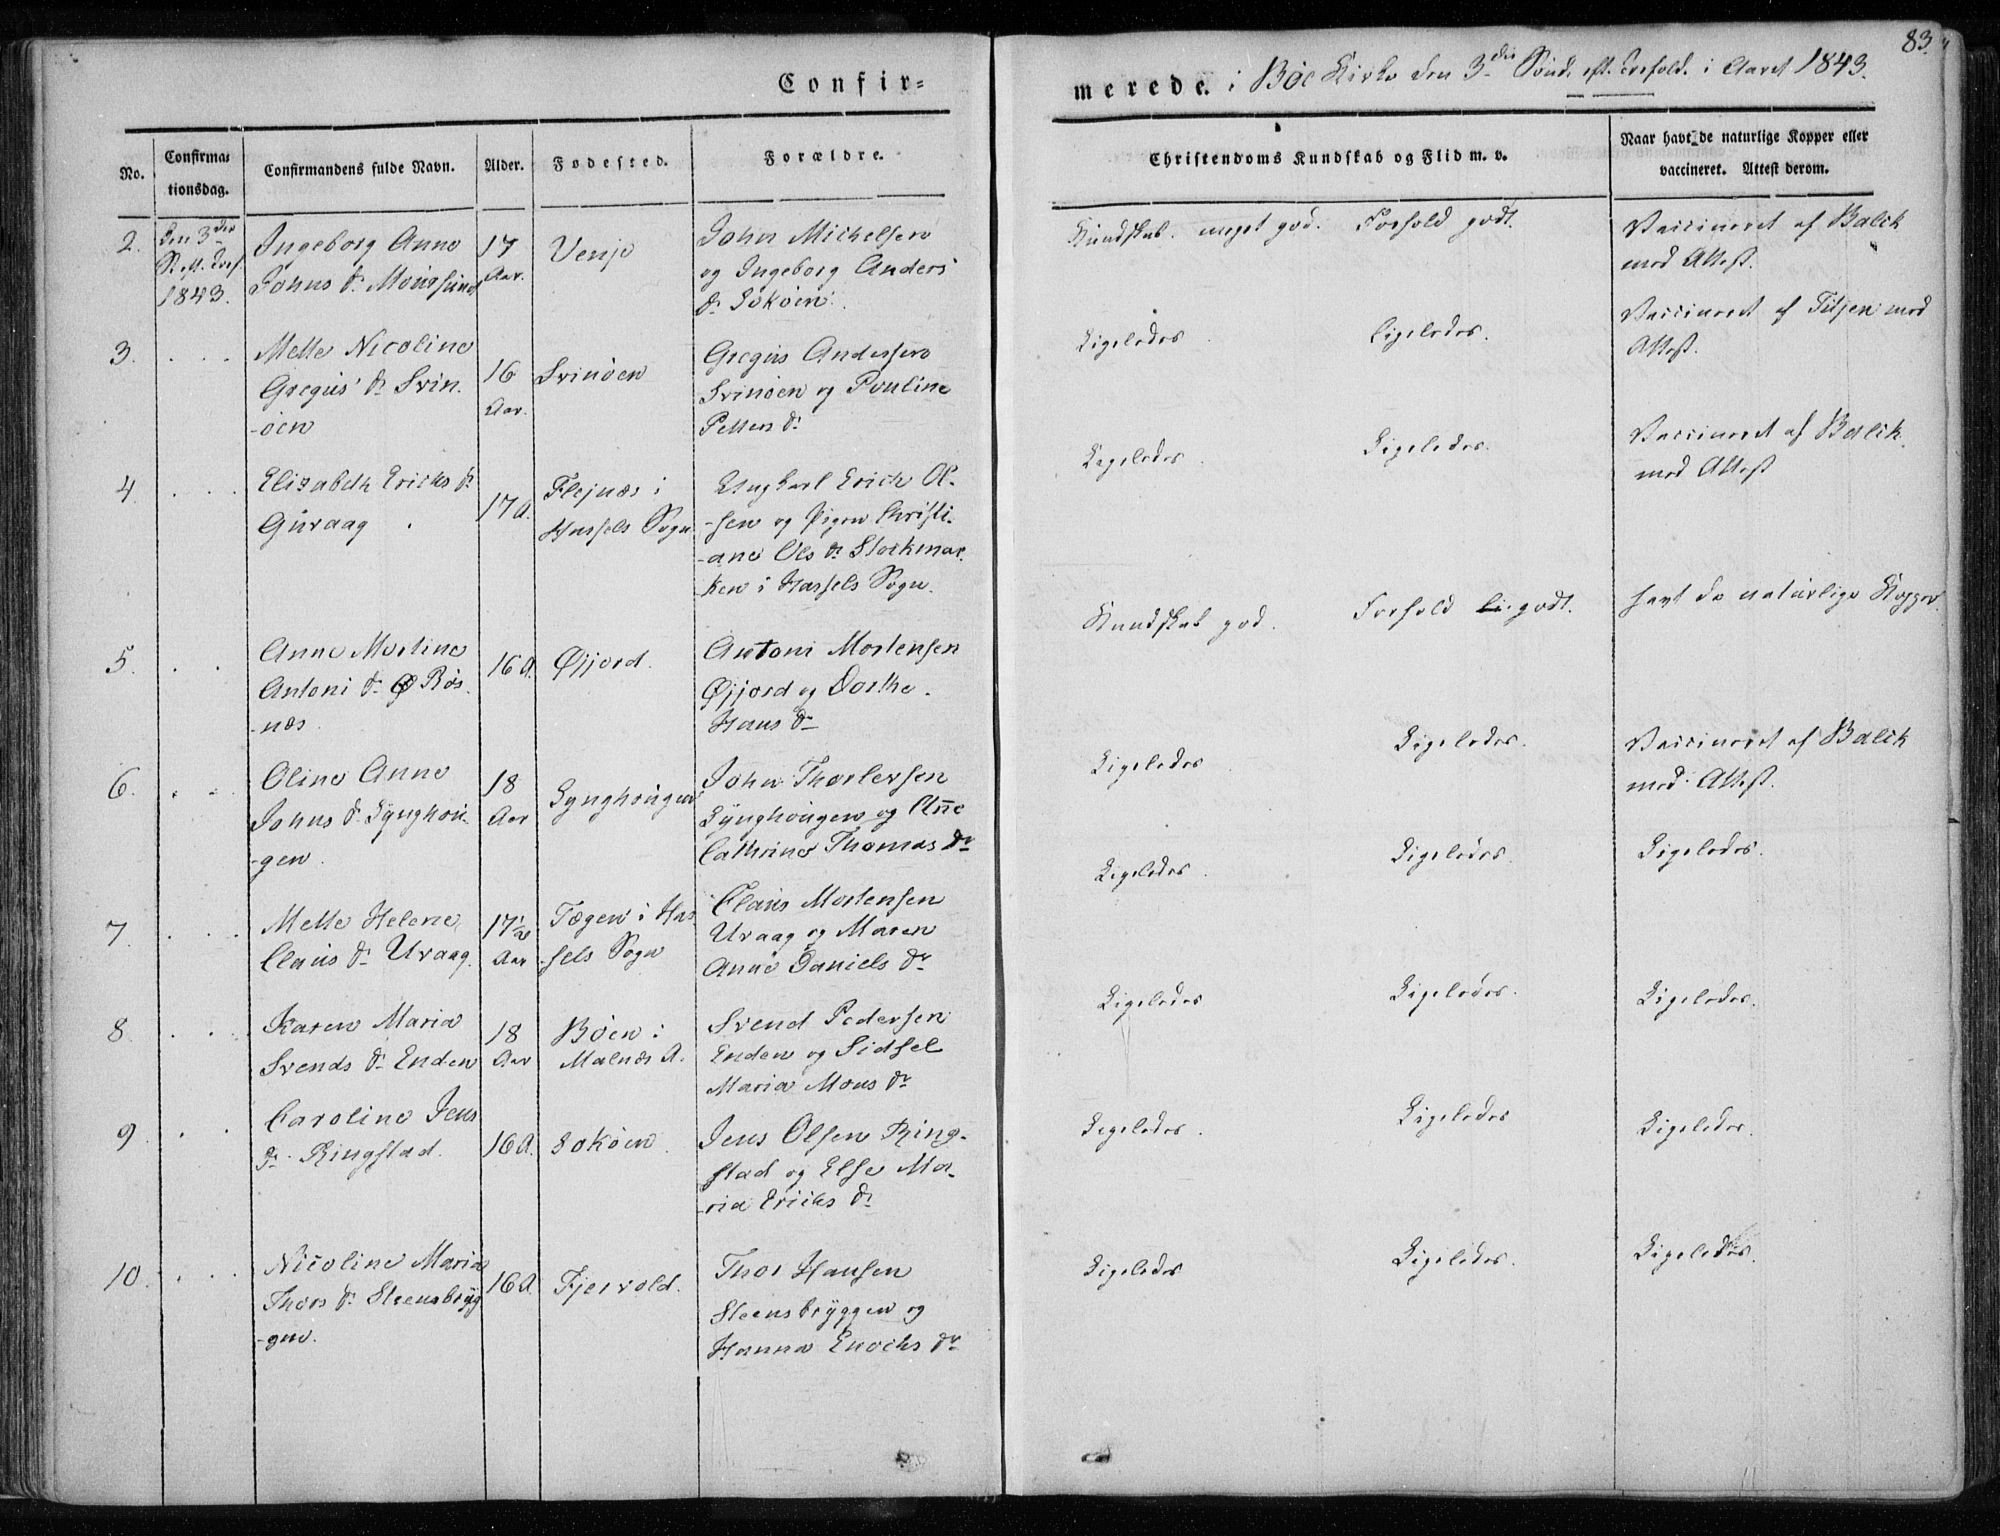 83.
Confir=
merede. i Böe Kirke den 3die Sönd. eft. Trefold. i Aaret 1843.
No.
Confirma=
tionsdag.
Confirmandens fulde Navn.
Alder.
Fødested.
Forældre.
Christendoms Kundskab og Flid m. v.
Naar havt de naturlige Kopper eller
vaccineret. Attest derom.
2.
Den 3die
S. eft. Tref.
1843.
Ingeborg Anne
Johns Dr
17
Aar.
Venje
John Michelsen
og Ingeborg Anders
Dr Sokøen.
Kundskab. meget god. Forhold godt.
Vaccineret af Balch
med Attest.
3.
Mette Nicoline
Gregus Dr Svin-
-öen
16
Aar.
Svinöen
Gregus Andersen
Svinöen og Pauline
Petters Dr
Ligeledes. Ligeledes.
Vaccineret af med
Attest.
4
Elisabeth Erichs Dr
Guvaag
17 A.
Flejnæs i
Hassels Sogn
Ungkarl Erich Ol-
-sen og Pigen Christi-
-ane Ols Dr Stockmar-
ken i Hassels Sogn.
Ligeledes. Ligeledes.
Vaccineret af Balch
med Attest
5.
Anne Martine
Antoni Dr Rös-
-næs
16 A.
Øjjord.
Antoni Mortensen
Øjjord og Dorthe
Hans Dr
Kundskab god. Forhold godt.
havt de naturlige Kopper.
6.
Oline Anne
Johns Dr Lynghöu-
-gen
18
Aar
Lynghöugen
John Thorlersen
Lynghöugen og Añe
Cathrine Thomas Dr
Ligeledes Ligeledes.
Vaccineret af Balch
med Attest.
7.
Mette Helene
Claus Dr Uvaag.
17½
Aar
Tøgen i Has
-sels Sogn
Claus Mortensen
Uvaag og Maren
Anne Daniels Dr
Ligeledes. Ligeledes.
Ligeledes.
8.
Karen Maria
Svends Dr Enden
18
Aar
Böen i
Malnæs A.
Svend Pedersen
Enden og Sidsel
Maria Mons Dr
Ligeledes Ligeledes.
Ligeledes.
9.
Caroline Jens
Dr Ringstad.
16 A.
Sokøen.
Jens Olsen Ring-
stad og Else Ma-
-ria Erichs Dr
Ligeledes. Ligeledes
Ligeledes.
10.
Nicoline Maria
Thors Dr Steensbryg
-gen.
16 A.
Fjervold.
Thor Hansen
Steensbryggen og
Hanna Enochs Dr
Ligeledes Ligeledes.
Ligeledes.